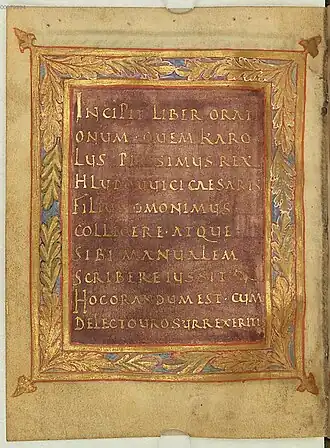 INCIPIT LIBER ORATI
ONUM QUEM KARO
LUS PIISSIMUS REX
HLUDOUUICI CAESARIS
FILIUS OMONIMUS
COLLIGERE ATQUE
SIBI MANUALEM
SCRIBERE IUSSIT
HOC ORANDUM EST CUM
DE LECTO URO SURREXERITIS